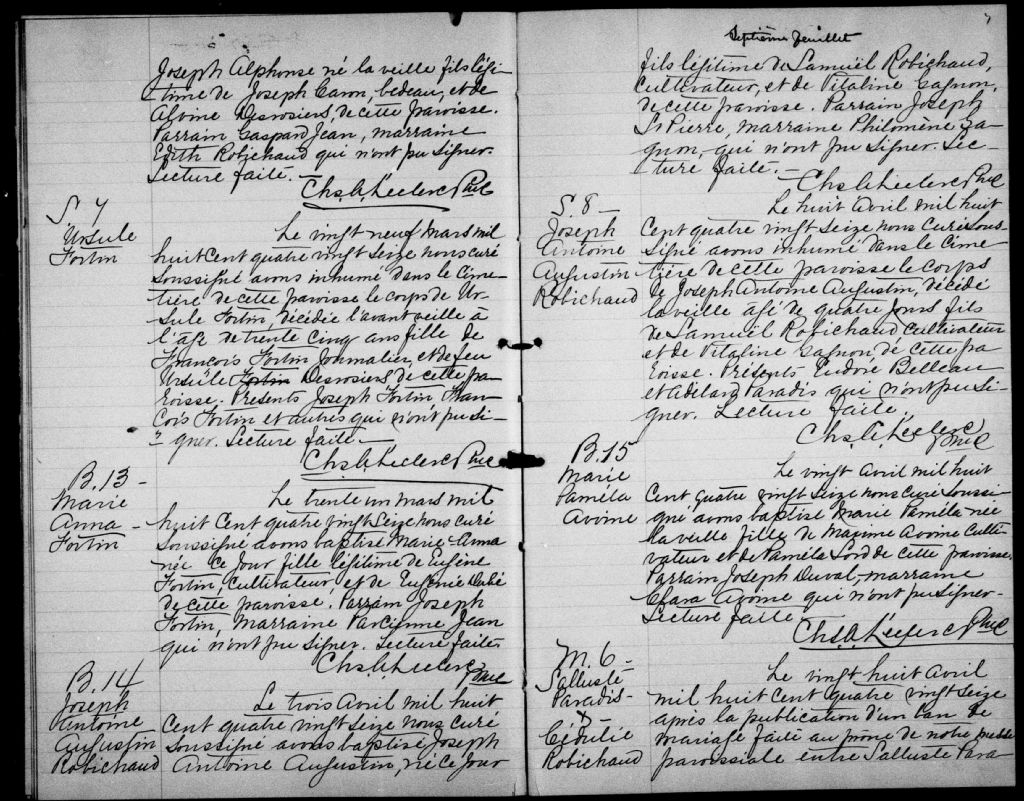 Joseph Alphonse né la veille fils légi-
time de Joseph Caron, bedeau, et de
Alvine Desrosiers, de cette paroisse.
Parrain Gaspard Jean, marraine
Edith Robichaud qui n'ont pu signer.
Lecture faite.
Chs. A. Leclerc Ptre
S. 7
Ursule
Fortin
Le vingt neuf Mars mil
huit cent quatre vingt seize nous curé
soussigné avons inhumé dans le cime-
tière de cette paroisse le corps de Ur-
sule Fortin, décédée l'avant veille à
l'âge de trente cinq ans fille de
François Fortin Journalier, et de feu
Ursule Fortin Desrosiers, de cette pa-
roisse. Présents Joseph Fortin Fran-
çois Fortin et autres qui n'ont pu si-
gner. Lecture faite.
Chs. A. Leclerc Ptre
B. 13
Marie
Anna
Fortin
Le trente un mars mil
huit cent quatre vingt seize nous curé
soussigné avons baptisé Marie-Anna
née ce jour fille légitime de Eugène
Fortin, cultivateur, et de Eugénie Dubé
de cette paroisse. Parrain Joseph
Fortin, Marraine Jean
qui n'ont pu signer. Lecture faite
Chs. A. Leclerc Ptre
B. 14
Joseph
Antoine
Augustin
Robichaud
Le trois Avril mil huit
cent quatre vingt seize nous curé
soussigné avons baptisé Joseph
Antoine Augustin, né ce jour
Septième feuillet
7
fils légitime de Samuël Robichaud,
cultivateur, et de Vitaline Gagnon,
de cette paroisse. Parrain Joseph
St Pierre, marraine Philomène Ga-
gnon, qui n'ont pu signer. Lec-
ture faite.
Chs. A. Leclerc Ptre
S. 8
Joseph
Antoine
Augustin
Robichaud
Le huit Avril mil huit
cent quatre vingt seize nous curé sous-
signé avons inhumé dans le cime
tière de cette paroisse le corps
de Joseph Antoine Augustin, décédé
la veille âgé de quatre jours fils
de Samuël Robichaud cultivateur
et de Vitaline Gagnon, de cette pa
roisse. Présents Eudore Belleau
et Adélard Paradis qui n'ont pu si-
gner. Lecture faite.
Chs. A. Leclerc Ptre
B. 15
Marie
Paméla
Avoine
Le vingt Avril mil huit
cent quatre vingt seize nous curé soussi-
gné, avons baptisé Marie Paméla née
la veille fille de Maxime Avoine culti-
vateur et de Paméla Lord de cette paroisse.
Parrain Joseph Duval, marraine
Clara Avoine qui n'ont pu signer.
Lecture faite.
Chs. A. Leclerc Ptre
M. 6
Salluste
Paradis
&
Cédulie
Robichaud
Le vingt huit Avril
mil huit cent quatre vingt seize
après la publication d'un ban de
mariage faite au prône de notre messe
paroissiale entre Salluste Para